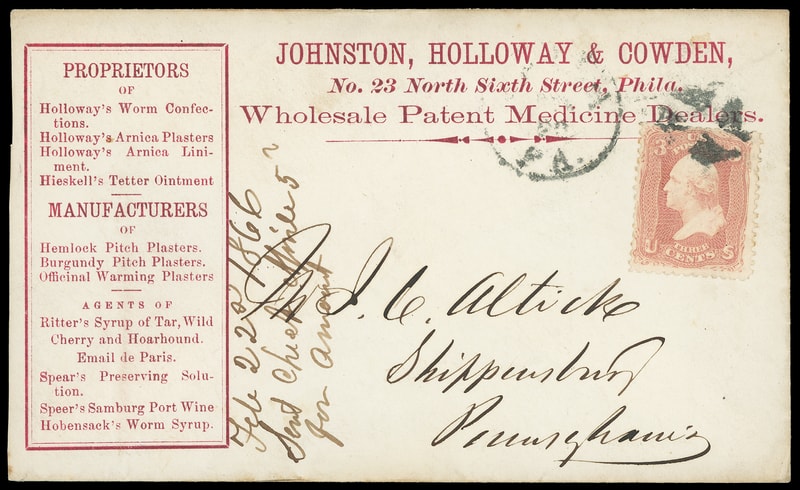 JOHNSTON, HOLLOWAY & COWDEN,
No. 23 North Sixth Street, Phila.
Wholesale Patent Medicine Dealers.
PROPRIETORS
OF
Holloway's Worm Confec-
tions.
Holloway's Arnica Plasters
Holloway's Arnica Lini-
ment.
Hieskell's Tetter Ointment
MANUFACTURERS
OF
Hemlock Pitch Plasters.
Burgundy Pitch Plasters.
Officinal Warming Plasters
AGENTS OF
Ritter's Syrup of Tar, Wild
Cherry and Hoarhound.
Email de Paris.
Spear's Preserving Solu-
tion.
Speer's Samburg Port Wine
Hobensack's Worm Syrup.
PA.
3
U S
THREE
CENTS
J. C. Altick
Shippensburg
Pennsylvania
Feb 22d 1866
Sent Check
for Amount